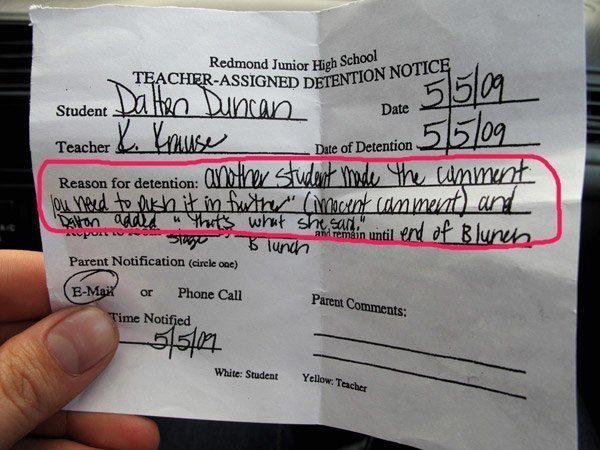 Redmond Junior High School
TEACHER-ASSIGNED DETENTION NOTICE
Student Dalten Duncan Date 5/5/09
Teacher K. Krause Date of Detention 5/5/09
Reason for detention: another student made the comment
"you need to push it in further" (innocent comment) and
Dalton added "that's what she said."
Report to room stage B lunch and remain until end of B lunch
Parent Notification (circle one)
E-Mail or Phone Call Parent Comments:
Time Notified
5/5/09
White: Student Yellow: Teacher